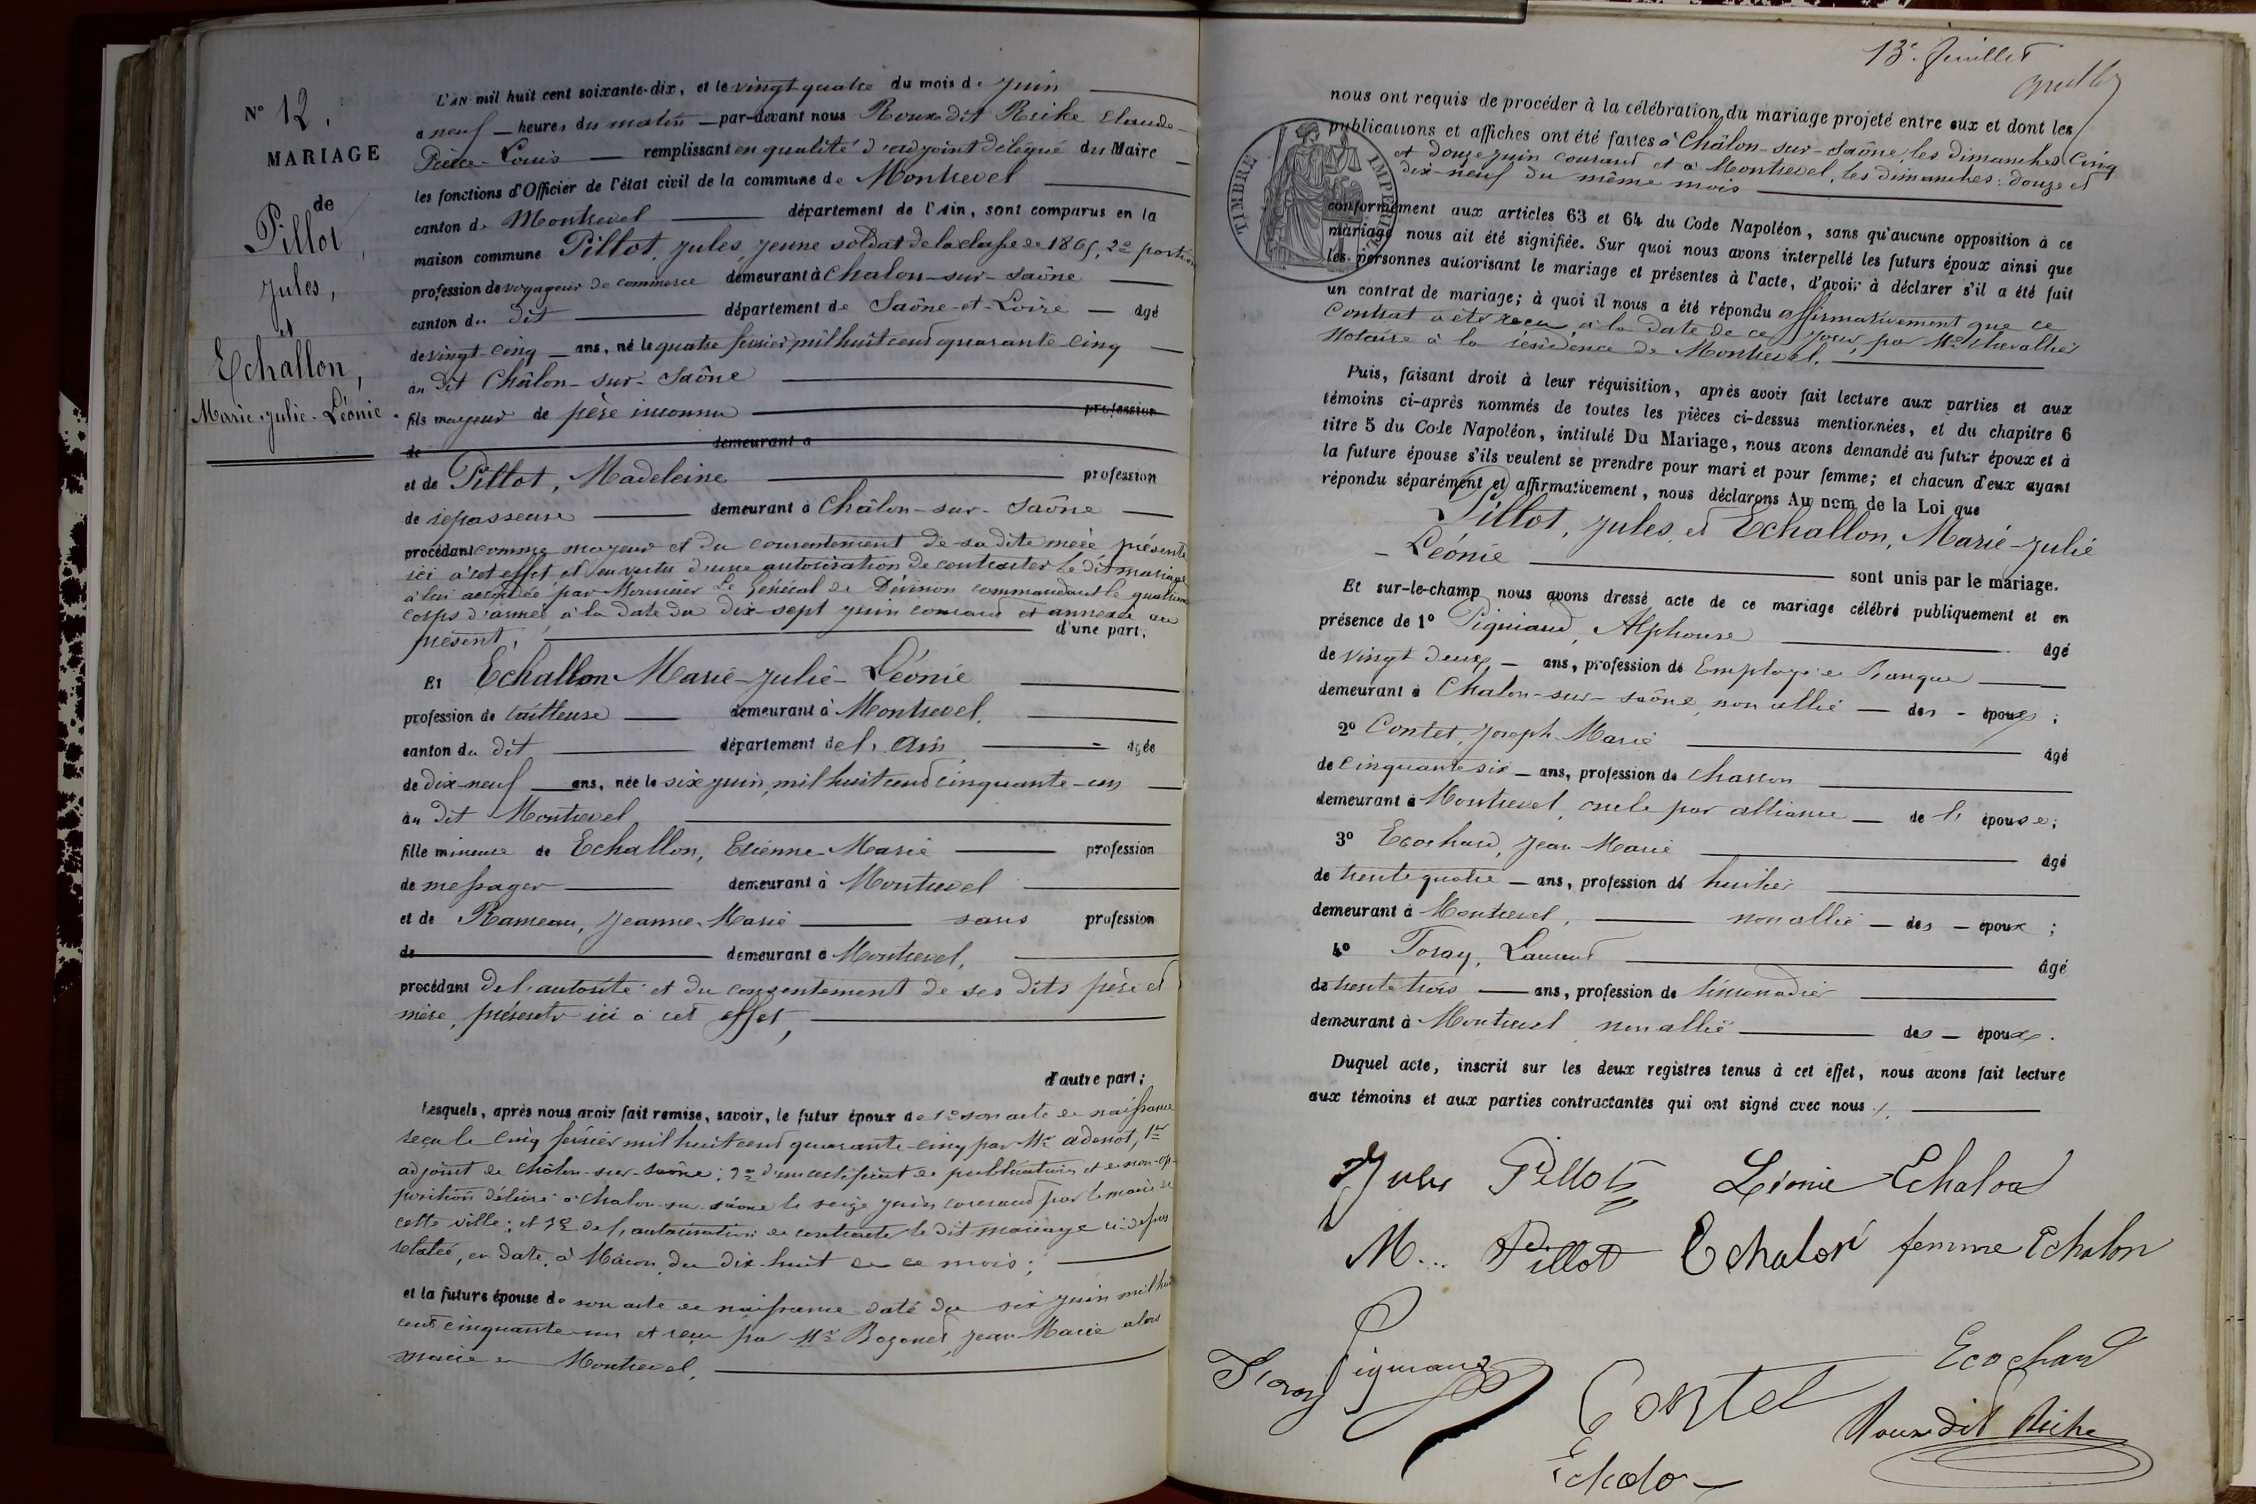 N° 12.
MARIAGE
de
Pillot,
Jules,
et
Echallon,
Marie-Julie-Léonie.
L'AN mil huit cent soixante-dix, et le vingt quatre du mois de Juin
à neuf heures du matin par-devant nous Roux dit Riche Claude-
Pierre-Louis remplissant en qualité d'adjoint délégué du Maire
les fonctions d'Officier de l'état civil de la commune de Montrevel
canton de Montrevel département de l'Ain, sont comparus en la
maison commune Pillot, Jules, jeune soldat de la classe de 1865, 2e portion
profession de voyageur de commerce demeurant à Chalon-sur-Saône
canton du dit département de Saône-et-Loire âgé
de vingt-cinq ans, né le quatre février mil huit cent quarante cinq
au dit Châlon-sur-Saône
fils majeur de père inconnu profession
de demeurant à
et de Pillot, Madeleine profession
de repasseuse demeurant à Châlon-sur-Saône
procédant comme majeur et du consentement de sa dite mère présente
ici à cet effet et en vertu d'une autorisation de contracter le dit mariage
à lui accordée par Monsieur le Général de Division commandant le quatrième
corps d'armée à la date du dix-sept juin courant et annexée au
présent, d'une part.
Et Echallon Marie-Julie-Léonie
profession de tailleuse demeurant à Montrevel,
canton du dit département de l'Ain âgée
de dix-neuf ans, née le six juin, mil huit cent cinquante-un
au dit Montrevel
fille mineure de Echallon, Etienne-Marie profession
de messager demeurant à Montrevel
et de Rameau, Jeanne-Marie sans profession
de demeurant à Montrevel,
procédant de l'autorité et du consentement de ses dits père et
mère, présents ici à cet effet,
d'autre part;
Lesquels, après nous avoir fait remise, savoir, le futur époux de 1° son acte de naissance
reçu le cinq février mil huit cent quarante-cinq par Mr Adenot, 1er
adjoint de Châlon-sur-Saône; 2° d'un certificat de publications et de non-op-
position délivré à Chalon-sur-Saône le seize juin courant par le maire de
cette ville; et 3° de l'autorisation de contracter le dit mariage ci-dessus
relatée, en date, à Mâcon, du dix-huit de ce mois;
et la future épouse de son acte de naissance daté du six juin mil huit
cent cinquante-un et reçu par Mr Bozonet, Jean-Marie alors
maire de Montrevel.
13e feuillet
nous ont requis de procéder à la célébration du mariage projeté entre eux et dont les
publications et affiches ont été faites à Châlon-sur-Saône, les dimanches cinq
et douze juin courant et à Montrevel, les dimanches: douze et
dix-neuf du même mois
TIMBRE IMPÉRIAL
conformément aux articles 63 et 64 du Code Napoléon, sans qu'aucune opposition à ce
mariage nous ait été signifiée. Sur quoi nous avons interpellé les futurs époux ainsi que
les personnes autorisant le mariage et présentes à l'acte, d'avoir à déclarer s'il a été fait
un contrat de mariage; à quoi il nous a été répondu affirmativement que ce
contrat a été reçu, à la date de ce jour, par Me Chevallier
notaire à la résidence de Montrevel.
Puis, faisant droit à leur réquisition, après avoir fait lecture aux parties et aux
témoins ci-après nommés de toutes les pièces ci-dessus mentionnées, et du chapitre 6
titre 5 du Code Napoléon, intitulé Du Mariage, nous avons demandé au futur époux et à
la future épouse s'ils veulent se prendre pour mari et pour femme; et chacun d'eux ayant
répondu séparément et affirmativement, nous déclarons Au nom de la Loi que
Pillot, Jules, et Echallon, Marie-Julie
-Léonie sont unis par le mariage.
Et sur-le-champ nous avons dressé acte de ce mariage célébré publiquement et en
présence de 1° Pigniaud, Alphonse âgé
de vingt deux ans, profession de Employé de Banque
demeurant à Chalon-sur-Saône, non allié des époux;
2° Contet, Joseph-Marie âgé
de cinquante six ans, profession de charron
demeurant à Montrevel, oncle par alliance de l'épouse;
3° Ecochard, Jean-Marie âgé
de trente quatre ans, profession de huissier
demeurant à Montrevel, non allié des époux;
4° Toray, Laurent âgé
de trente trois ans, profession de limonadier
demeurant à Montrevel non allié des époux.
Duquel acte, inscrit sur les deux registres tenus à cet effet, nous avons fait lecture
aux témoins et aux parties contractantes qui ont signé avec nous.
Jules Pillot Léonie Echalon
M... Pillot Echalon femme Echalon
Toray Pigniaud Contet Ecochard
Echalo Roux dit Riche